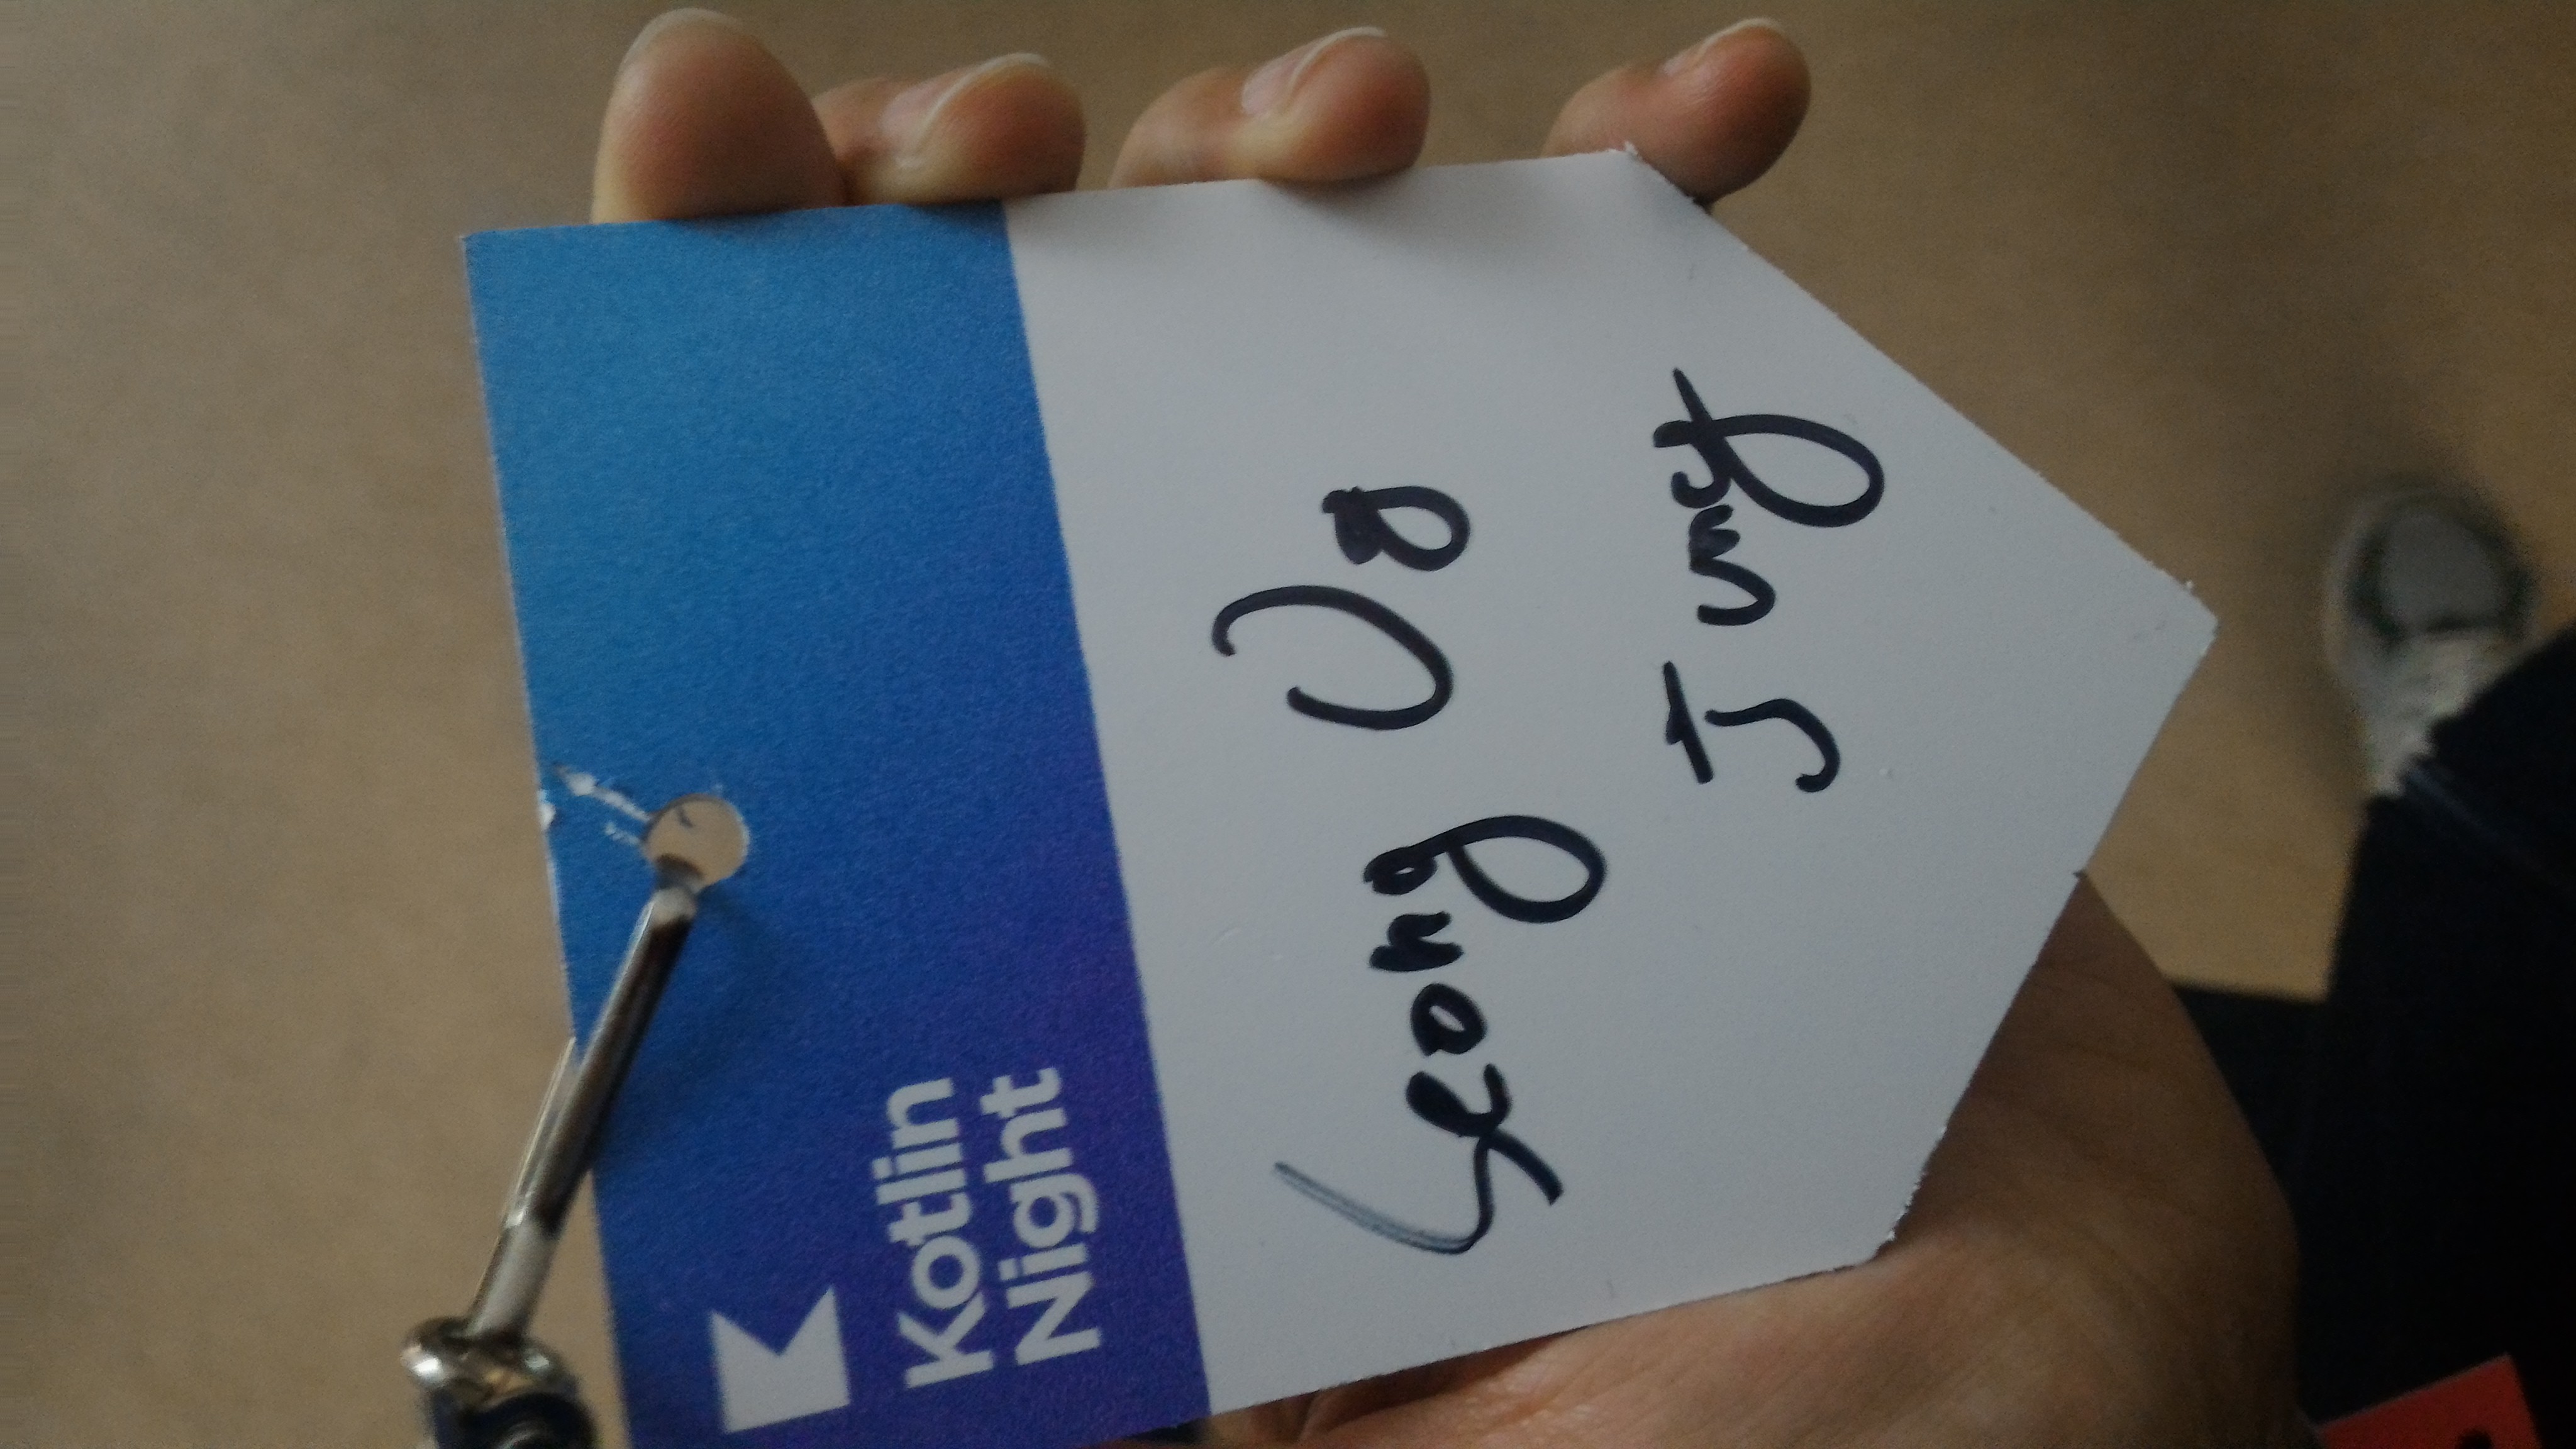 Kotlin
Night
Seong Ug
Jung